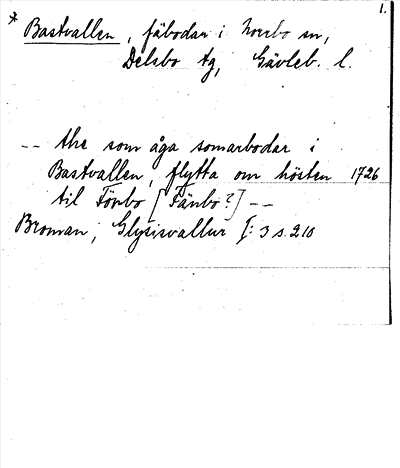 1.
* Bastvallen, fäbodar i Norrbo sn,
Delsbo tg, Gävleb. l.
-- the som äga somarbodar i
Bastvallen, flytta om hösten 1726
til Fönbo [Fänbo?] --
Broman, Glysisvallur I: 3 s. 210